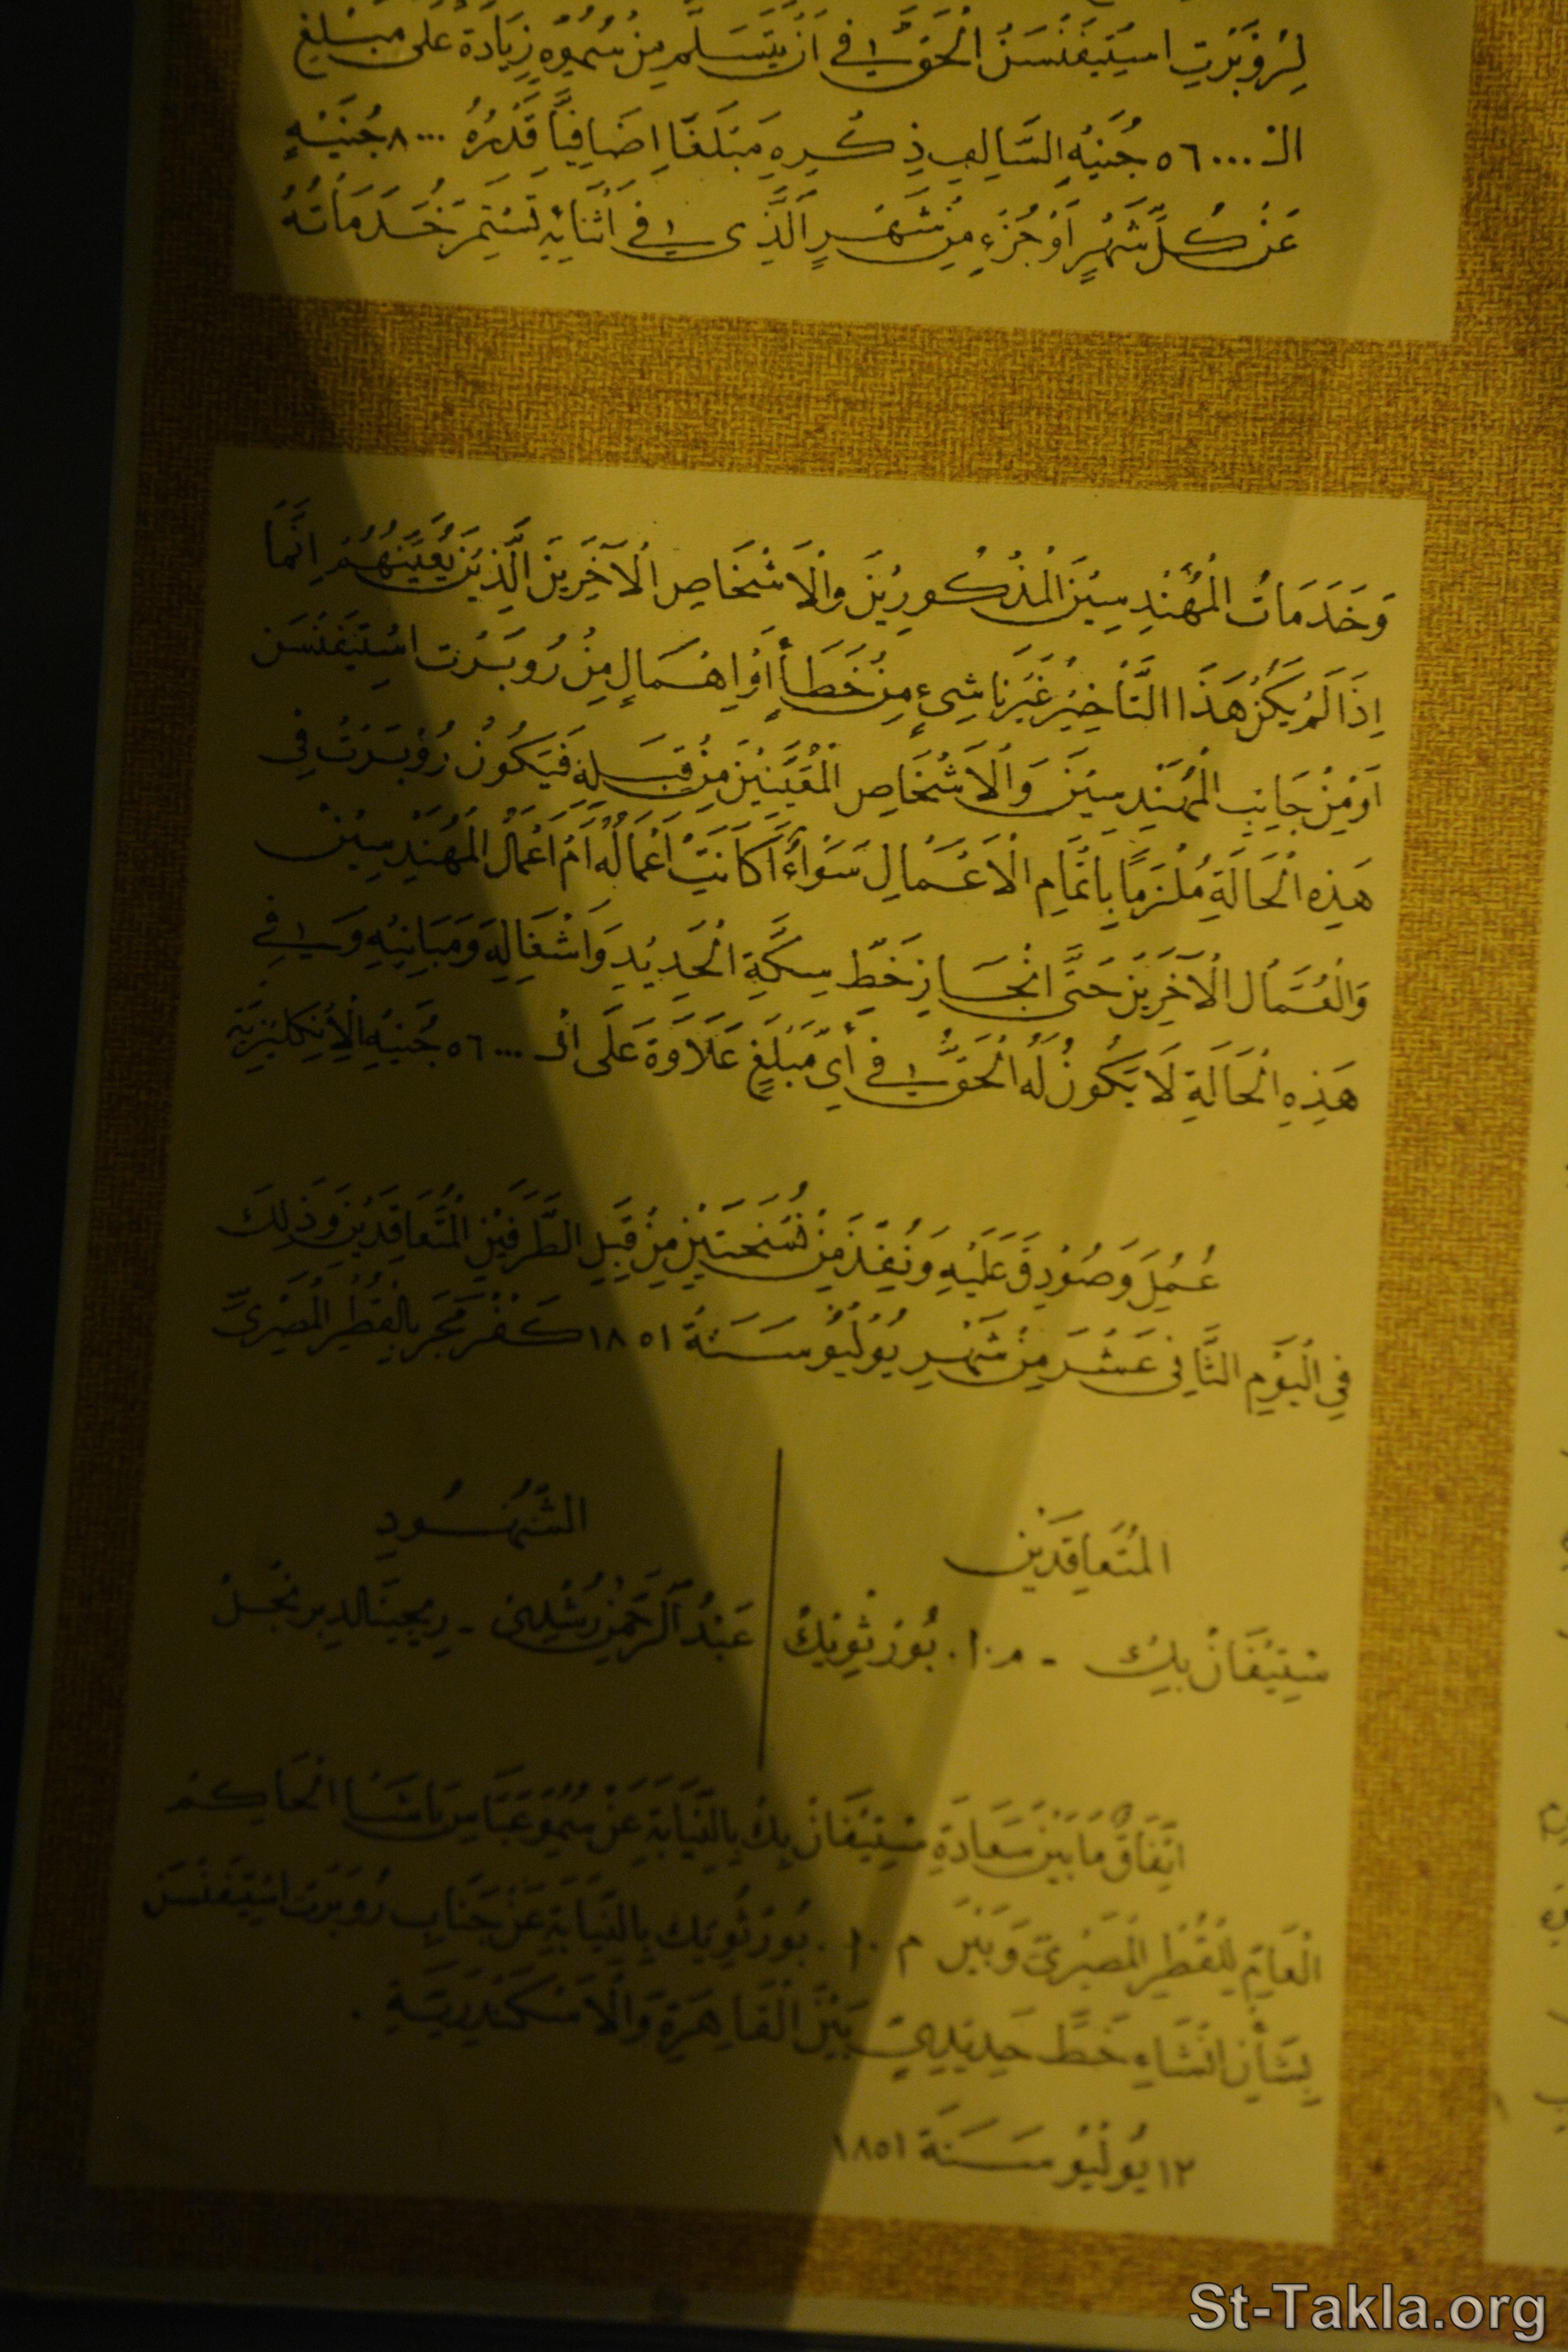 لِرُوبَرْتِ اسْتِيفَنْسَنْ الْحَقُّ فِي أَنْ يَتَسَلَّمَ مِنْ سُمُوِّهِ زِيَادَةً عَلَى مَبْلَغِ
الـ ٥٦٠٠٠ جُنَيْهٍ السَّالِفِ ذِكْرِهِ مَبْلَغًا إِضَافِيًّا قَدْرُهُ ٨٠٠٠ جُنَيْهٍ
عَنْ كُلِّ شَهْرٍ أَوْ جُزْءٍ مِنْ شَهْرٍ الَّذِي فِي أَثْنَائِهِ تَسْتَمِرُّ خَدَمَاتُهُ
وَخَدَمَاتُ الْمُهَنْدِسِيْنَ الْمَذْكُورِيْنَ وَالْأَشْخَاصِ الْآخَرِيْنَ الَّذِيْنَ يُعَيِّنُهُمْ إِنَّمَا
إِذَا لَمْ يَكُنْ هَذَا التَّأْخِيْرُ غَيْرَ نَاشِيءٍ مِنْ خَطَأٍ أَوْ إِهْمَالٍ مِنْ رُوبَرْت اسْتِيفَنْسَن
أَوْ مِنْ جَانِبِ الْمُهَنْدِسِيْنَ وَالْأَشْخَاصِ الْمُعَيَّنِيْنَ مِنْ قِبَلِهِ فَيَكُونُ رُوْبَرْتُ فِي
هَذِهِ الْحَالَةِ مُلْزَمًا بِإِتْمَامِ الْأَعْمَالِ سَوَاءً أَكَانَتْ أَعْمَالُهُ أَمْ أَعْمَالُ الْمُهَنْدِسِيْنْ
وَالْعُمَّالِ الْآخَرِيْنَ حَتَّى انْجَازِ خَطِّ سِكَّةِ الْحَدِيْدِ وَأَشْغَالِهِ وَمَبَانِيْهِ وَفِي
هَذِهِ الْحَالَةِ لَا يَكُونُ لَهُ الْحَقُّ فِي أَيِّ مَبْلَغٍ عَلَاوَةً عَلَى الْـ ٥٦٠٠٠ جُنَيْهٍ الْإِنْكِلِيْزِيَّةِ
عُمِلَ وَصُوْدِقَ عَلَيْهِ وَنُفِّذَ مِنْ نُسْخَتَيْنِ مِنْ قِبَلِ الطَّرَفَيْنِ الْمُتَعَاقِدَيْنِ وَذَلِكَ
فِي الْيَوْمِ الثَّانِي عَشَرَ مِنْ شَهْرِ يُوْلْيُو سَنَةَ ١٨٥١ كَفْر مَجَر بِالْقُطْرِ الْمِصْرِيِّ
الْمُتَعَاقِدَيْن
سْتِيْفَانْ بِيْك - م.ا. بُوْرْثْوِيْكْ
الشُّهُودِ
عَبْدُ الرَّحْمٰن رُشْدِي -
اتِّفَاقٌ مَا بَيْنَ سَعَادَةِ سْتِيْفَانْ بِكْ بِالنِّيَابَةِ عَنْ سُمُوِّ عَبَّاسَ بَاشَا الْحَاكِمْ
الْعَامِّ لِلْقُطْرِ الْمِصْرِيِّ وَبَيْنَ م.ا. بُوْرْثْوِيْك بِالنِّيَابَةِ عَنْ جَنَابِ رُوبَرْت اسْتِيفَنْسَنْ
بِشَأْنِ إِنْشَاءِ خَطٍّ حَدِيْدِيٍّ بَيْنَ الْقَاهِرَةِ وَالْأَسْكَنْدَرِيَّةِ .
١٢ يُوْلْيُو سَنَةَ ١٨٥١
St-Takla.org